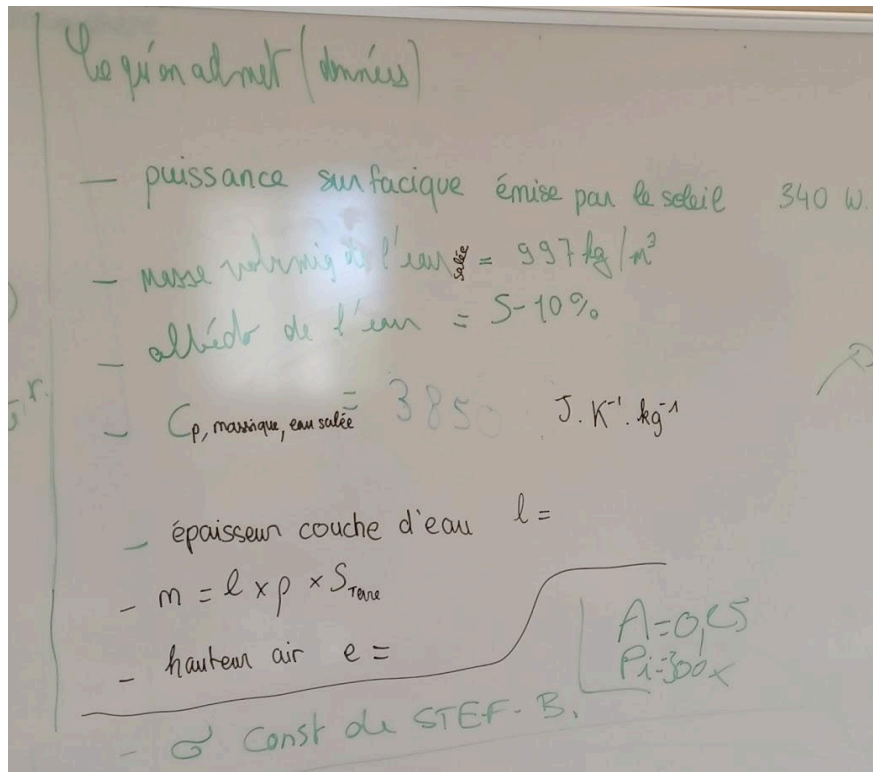 Ce qu'on admet (données)
— puissance surfacique émise par le soleil 340 W.
— masse volumiq de l'eau salée = 997 kg/m³
— albédo de l'eau = 5-10%
— Cp, massique, eau salée = 3850 J.K⁻¹.kg⁻¹
— épaisseur couche d'eau l =
- m = l x ρ x S Terre
- hauteur air e =
A=0,25
Pi=300x
- σ const de STEF-B.